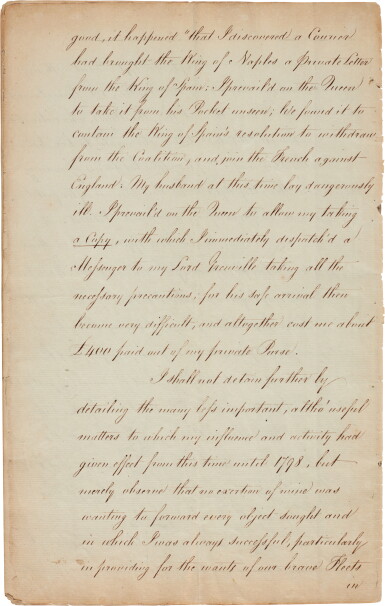 good, it happened "that I discovered a Courier
had brought the King of Naples a private letter
from the King of Spain; I prevail'd on the Queen
to take it from his Pocket unseen; We found it to
contain the King of Spain's resolution to withdraw
from the Coalition, and join the French against
England. My husband at this time lay dangerously
ill. I prevail'd on the Queen to allow my taking
a Copy, with which I immediately dispatch'd a
Messenger to my Lord Grenville taking all the
necessary precautions; for his safe arrival then
became very difficult, and altogether cost me about
£400 paid out of my private Purse.
I shall not detain further by
detailing the many less important, altho' useful
matters to which my influence and activity had
given effect from this time until 1798, but
merely observe that no exertion of mine was
wanting to forward every object sought and
in which I was always successful, particularly
in providing for the wants of our brave Fleets
in